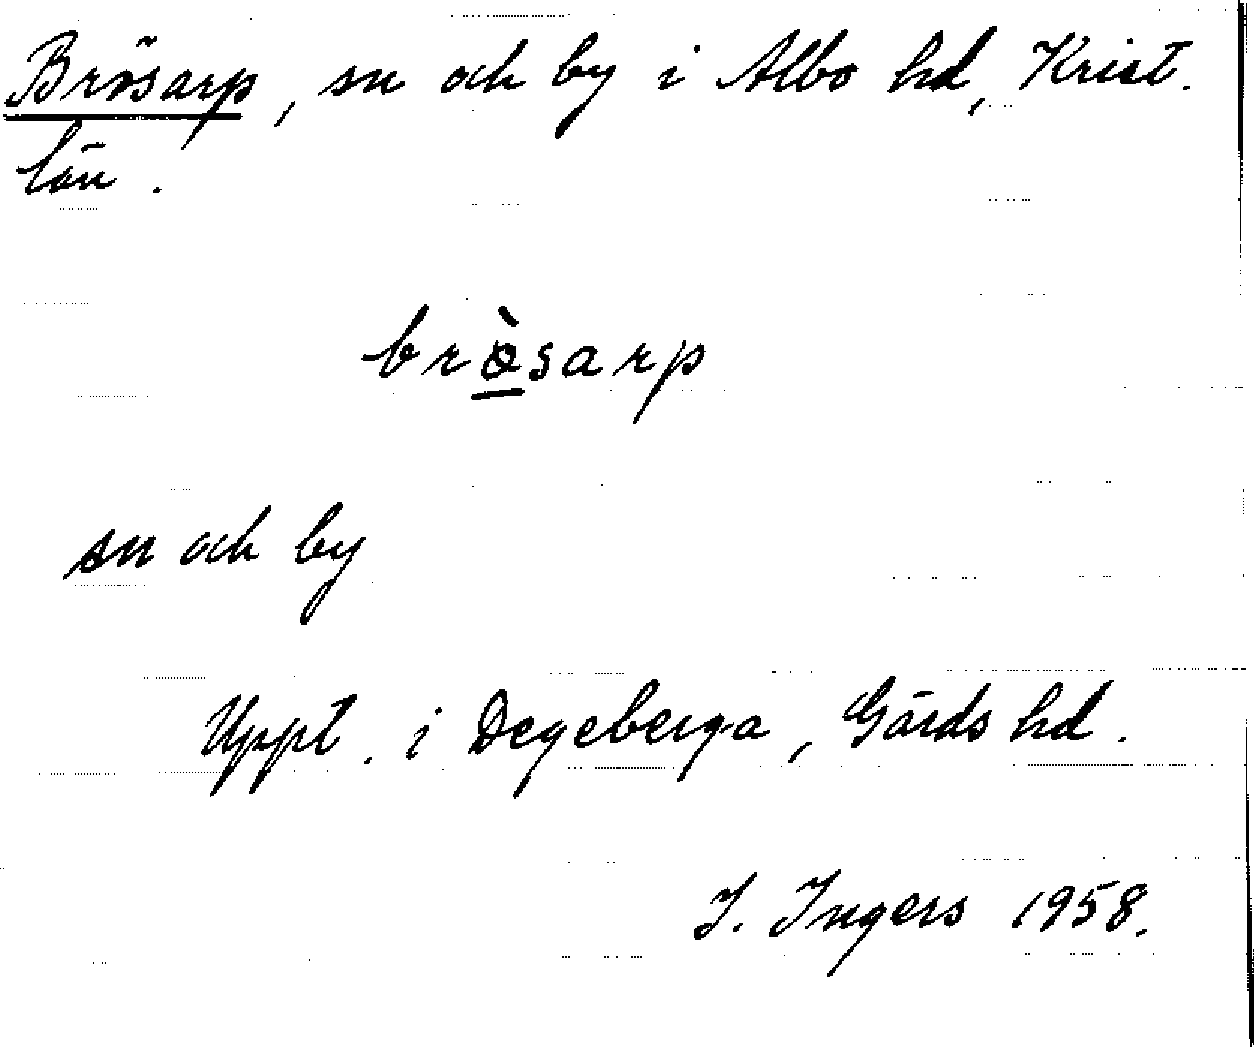 Brösarp, sn och by i Albo hd, Krist.
län.
brø̱̀sarp
sn och by
Uppt. i Degeberga, Gärds hd.
I. Ingers 1958.